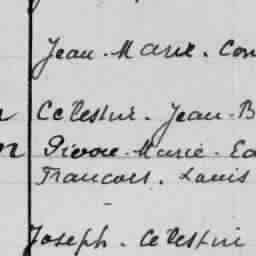 Jean. Marie. Con
Celestin. Jean. B
Pierre. Marie. Ed
Francois. Louis
Joseph. Celestin